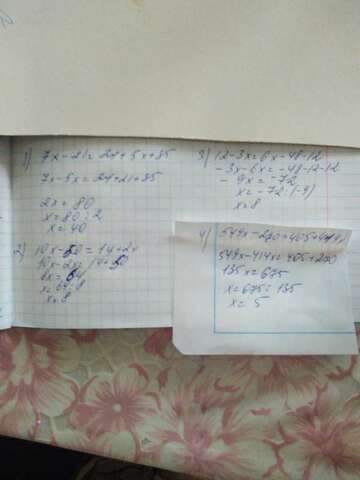 1) 7x-21=24+5x+85
7x-5x=24+21+85
2x=80
x=80:2
x=40
2) 10x-50=14+2x
10x-2x 14+50
8x=64
x=64:8
x=8
3) 12-3x=6x-48-12
-3x-6x=-48-12-12
-9x=-72
x=-72:(-9)
x=8
4) 549x-270=405+414x
549x-414x=405+270
135x=675
x=675:135
x=5